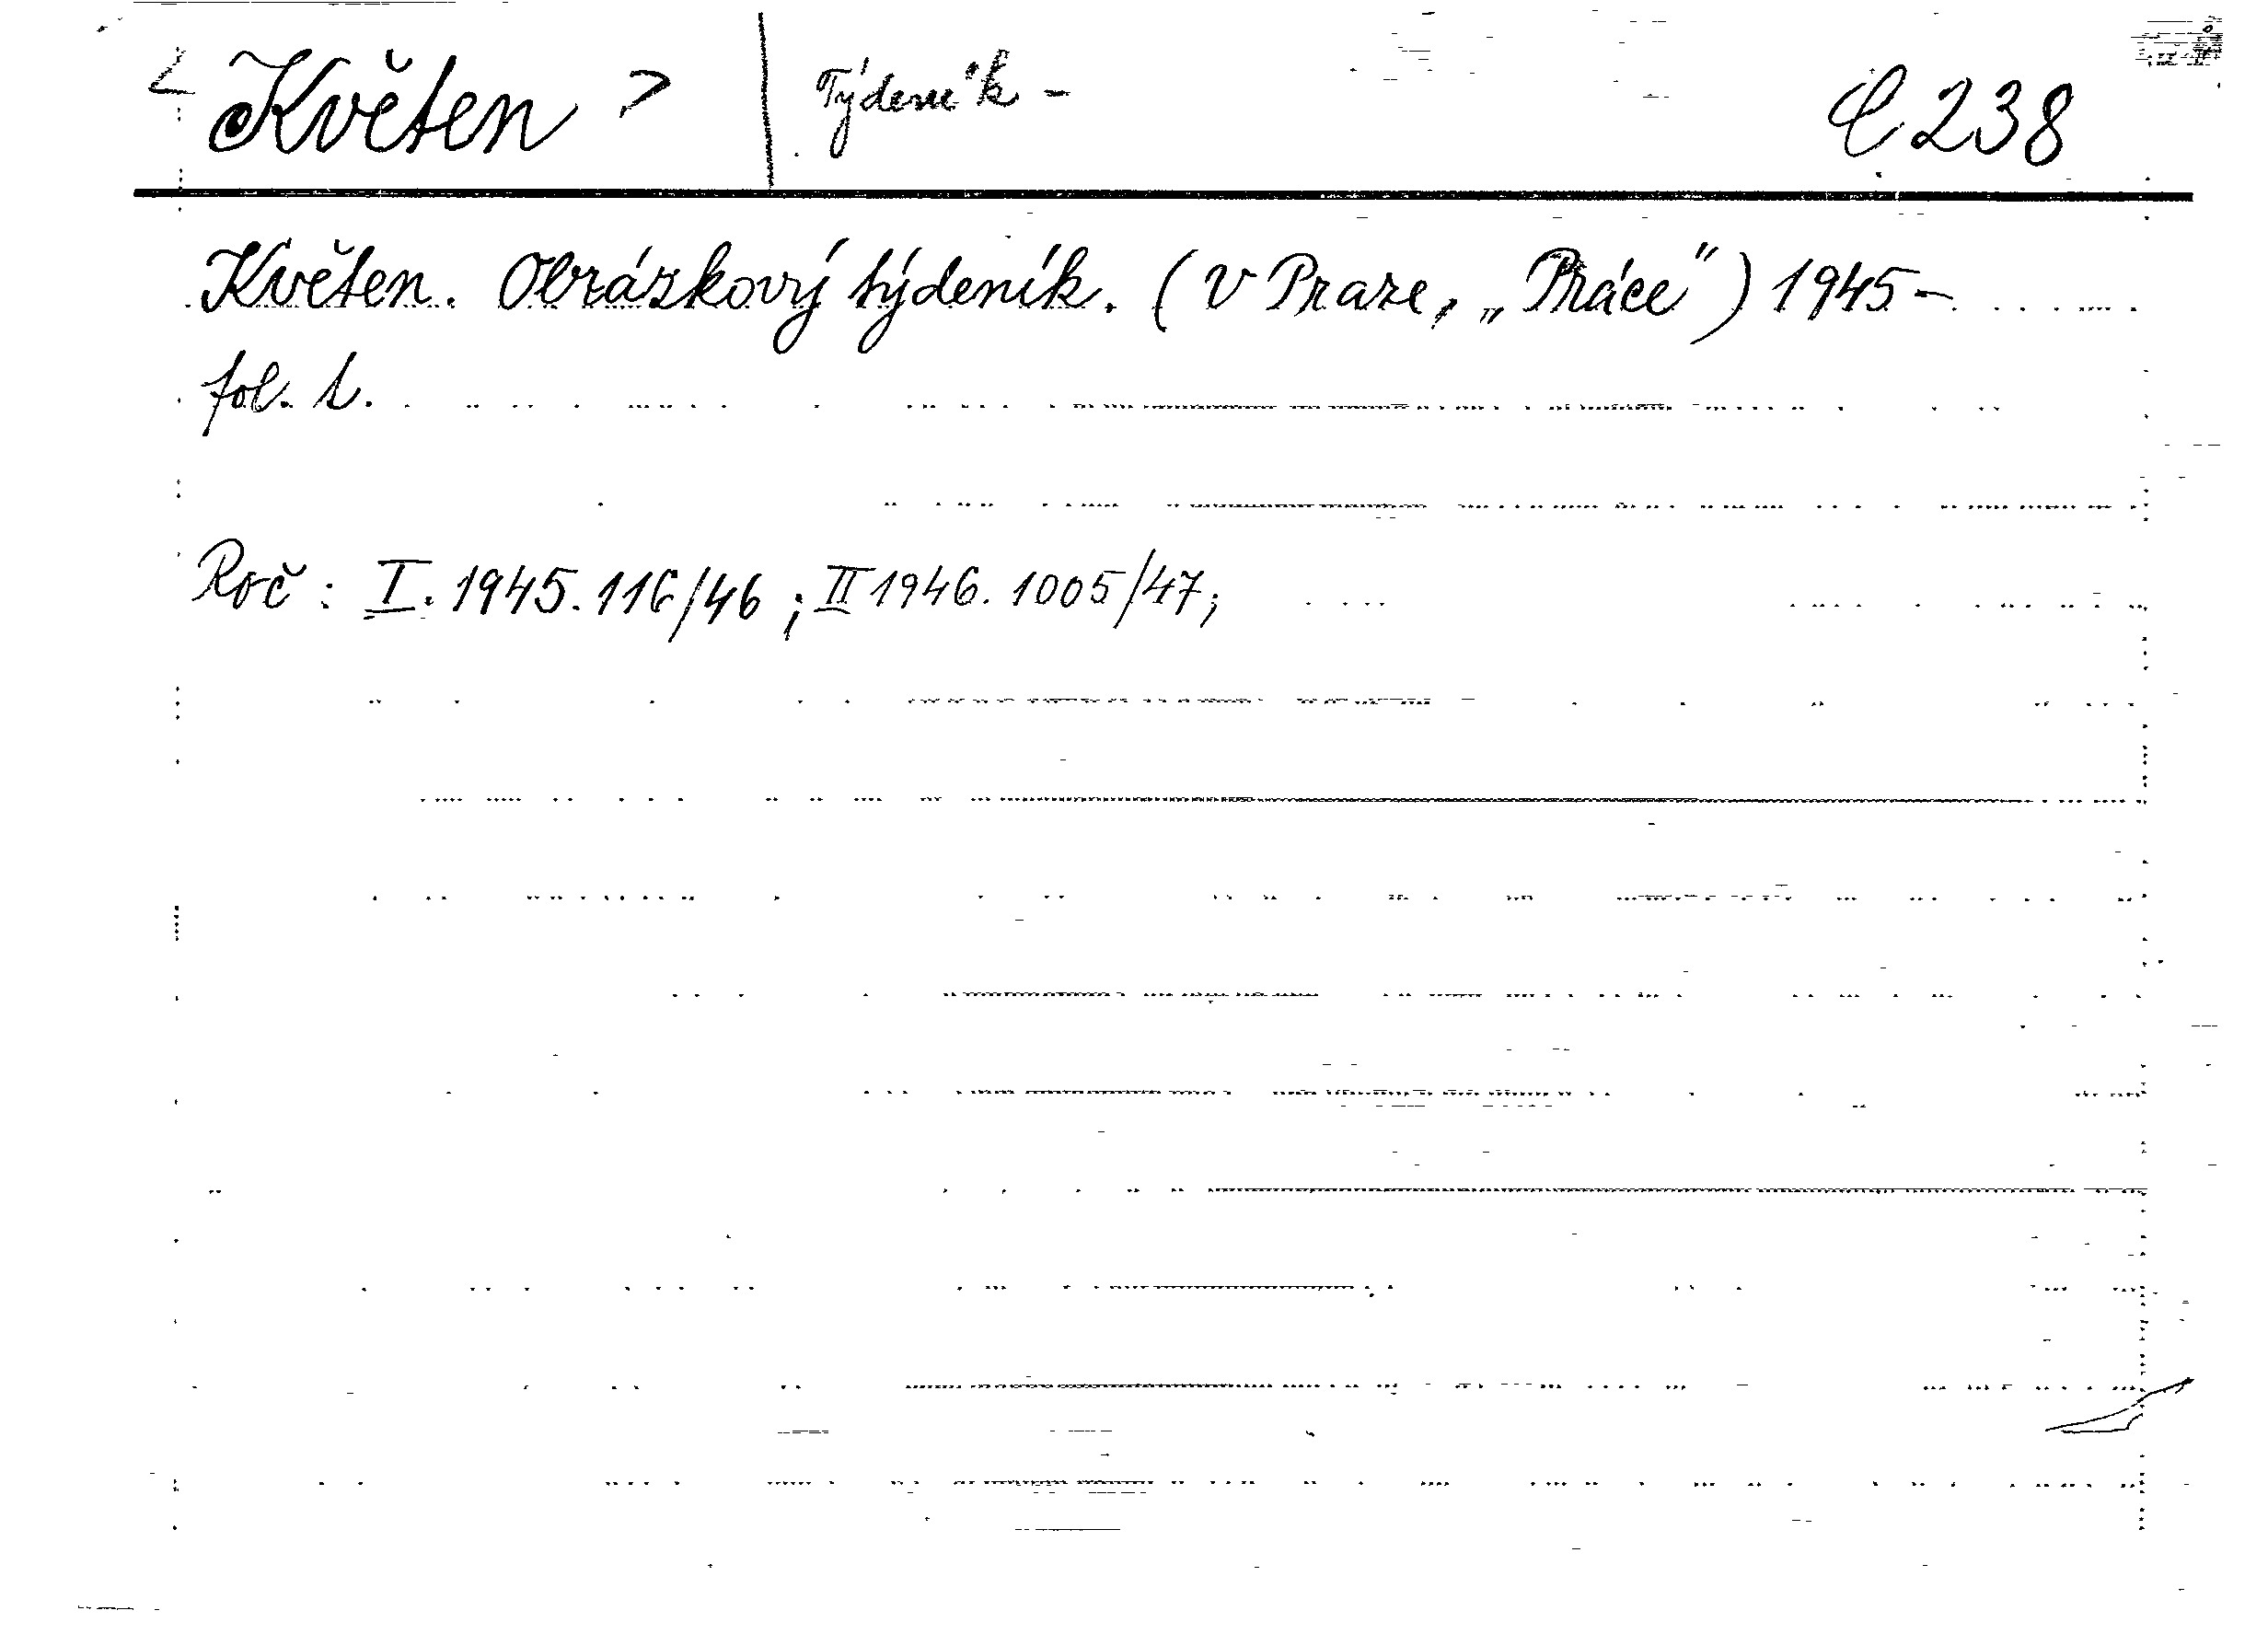 < Květen > | Týdeník - C 238
Květen. Obrázkový týdeník. (V Praze, „Práce") 1945-
fol. 1.
Roč: I. 1945. 116/46; II 1946. 1005/47;